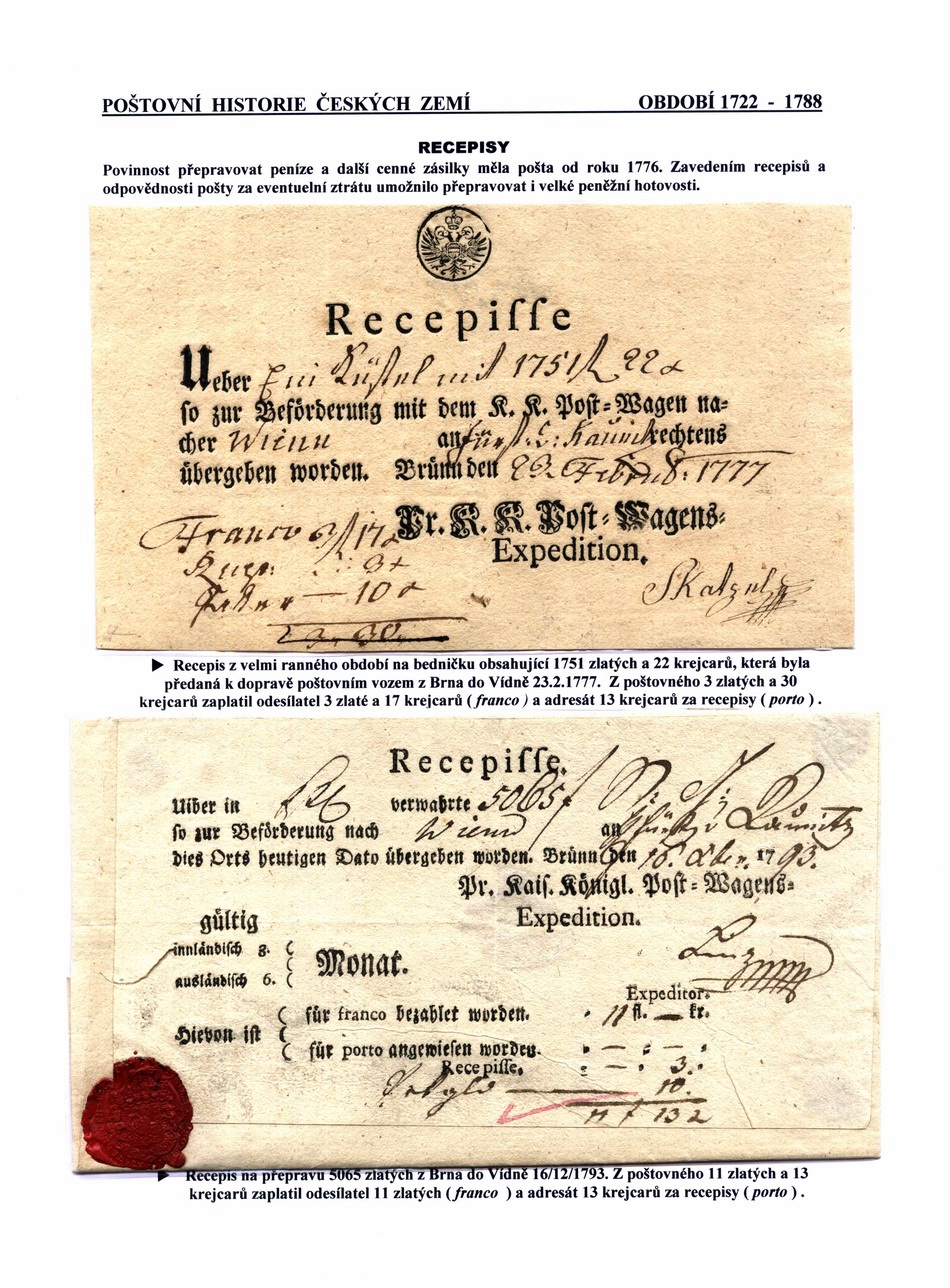 POŠTOVNÍ HISTORIE ČESKÝCH ZEMÍ OBDOBÍ 1722 - 1788
RECEPISY
Povinnost přepravovat peníze a další cenné zásilky měla pošta od roku 1776. Zavedením recepisů a
odpovědnosti pošty za eventuelní ztrátu umožnilo přepravovat i velké peněžní hotovosti.
Recepiſſe
Ueber Ein Küstel mit 1751 f 22 x
ſo zur Beförderung mit dem K. K. Poſt-Wagen na-
cher Wienn an fürstl: rechtens
übergeben worden. Brünn den 23 Febru 1777
Franco 3 f 17 x Pr. K. K. Poſt-Wagens-
3 x Expedition.
10 x
► Recepis z velmi ranného období na bedničku obsahující 1751 zlatých a 22 krejcarů, která byla
předaná k dopravě poštovním vozem z Brna do Vídně 23.2.1777. Z poštovného 3 zlatých a 30
krejcarů zaplatil odesílatel 3 zlaté a 17 krejcarů ( franco ) a adresát 13 krejcarů za recepisy ( porto ) .
Recepiſſe.
Uiber in verwahrte 5065 f
ſo zur Beförderung nach Wienn an
dies Orts heutigen Dato übergeben worden. Brünn den 16. Xber. 1793.
Pr. Kaiſ. Königl. Poſt-Wagens-
Expedition.
gültig
innländiſch 3.
Monat.
ausländiſch 6.
Expeditor.
für franco bezahlet worden. 11 fl. — kr.
Hievon iſt
für porto angewieſen worden. — —
Recepiſſe. — 3.
10.
11 f 13 x
► Recepis na přepravu 5065 zlatých z Brna do Vídně 16/12/1793. Z poštovného 11 zlatých a 13
krejcarů zaplatil odesílatel 11 zlatých ( franco ) a adresát 13 krejcarů za recepisy ( porto ) .